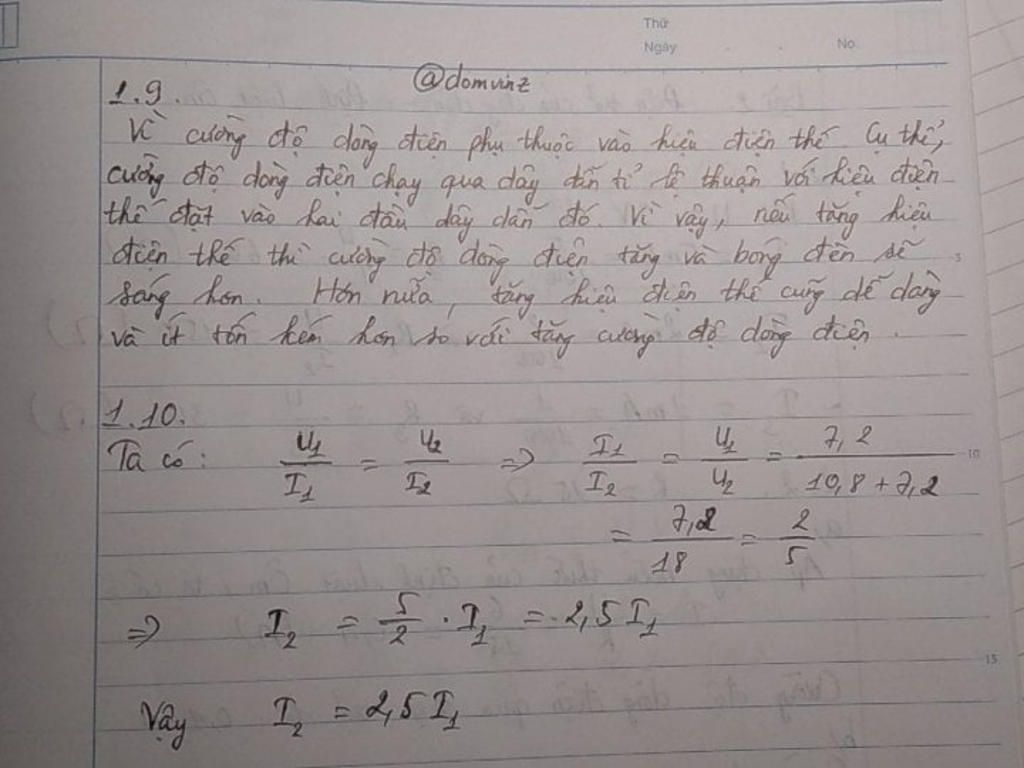 Thứ
Ngày
No.
@domvinz
1.9
Vì cường độ dòng điện phụ thuộc vào hiệu điện thế. Cụ thể,
cường độ dòng điện chạy qua dây dẫn tỉ lệ thuận với hiệu điện
thế đặt vào hai đầu dây dẫn đó. Vì vậy, nếu tăng hiệu
điện thế thì cường độ dòng điện tăng và bóng đèn sẽ
5
sáng hơn. Hơn nữa, tăng hiệu điện thế cũng dễ dàng
và ít tốn kém hơn so với tăng cường độ dòng điện.
1.10.
Ta có: U₁/I₁ = U₂/I₂ => I₁/I₂ = U₁/U₂ = 7,2/(10,8 + 7,2)
10
= 7,2/18 = 2/5
=> I₂ = 5/2 . I₁ = 2,5 I₁
15
Vậy I₂ = 2,5 I₁